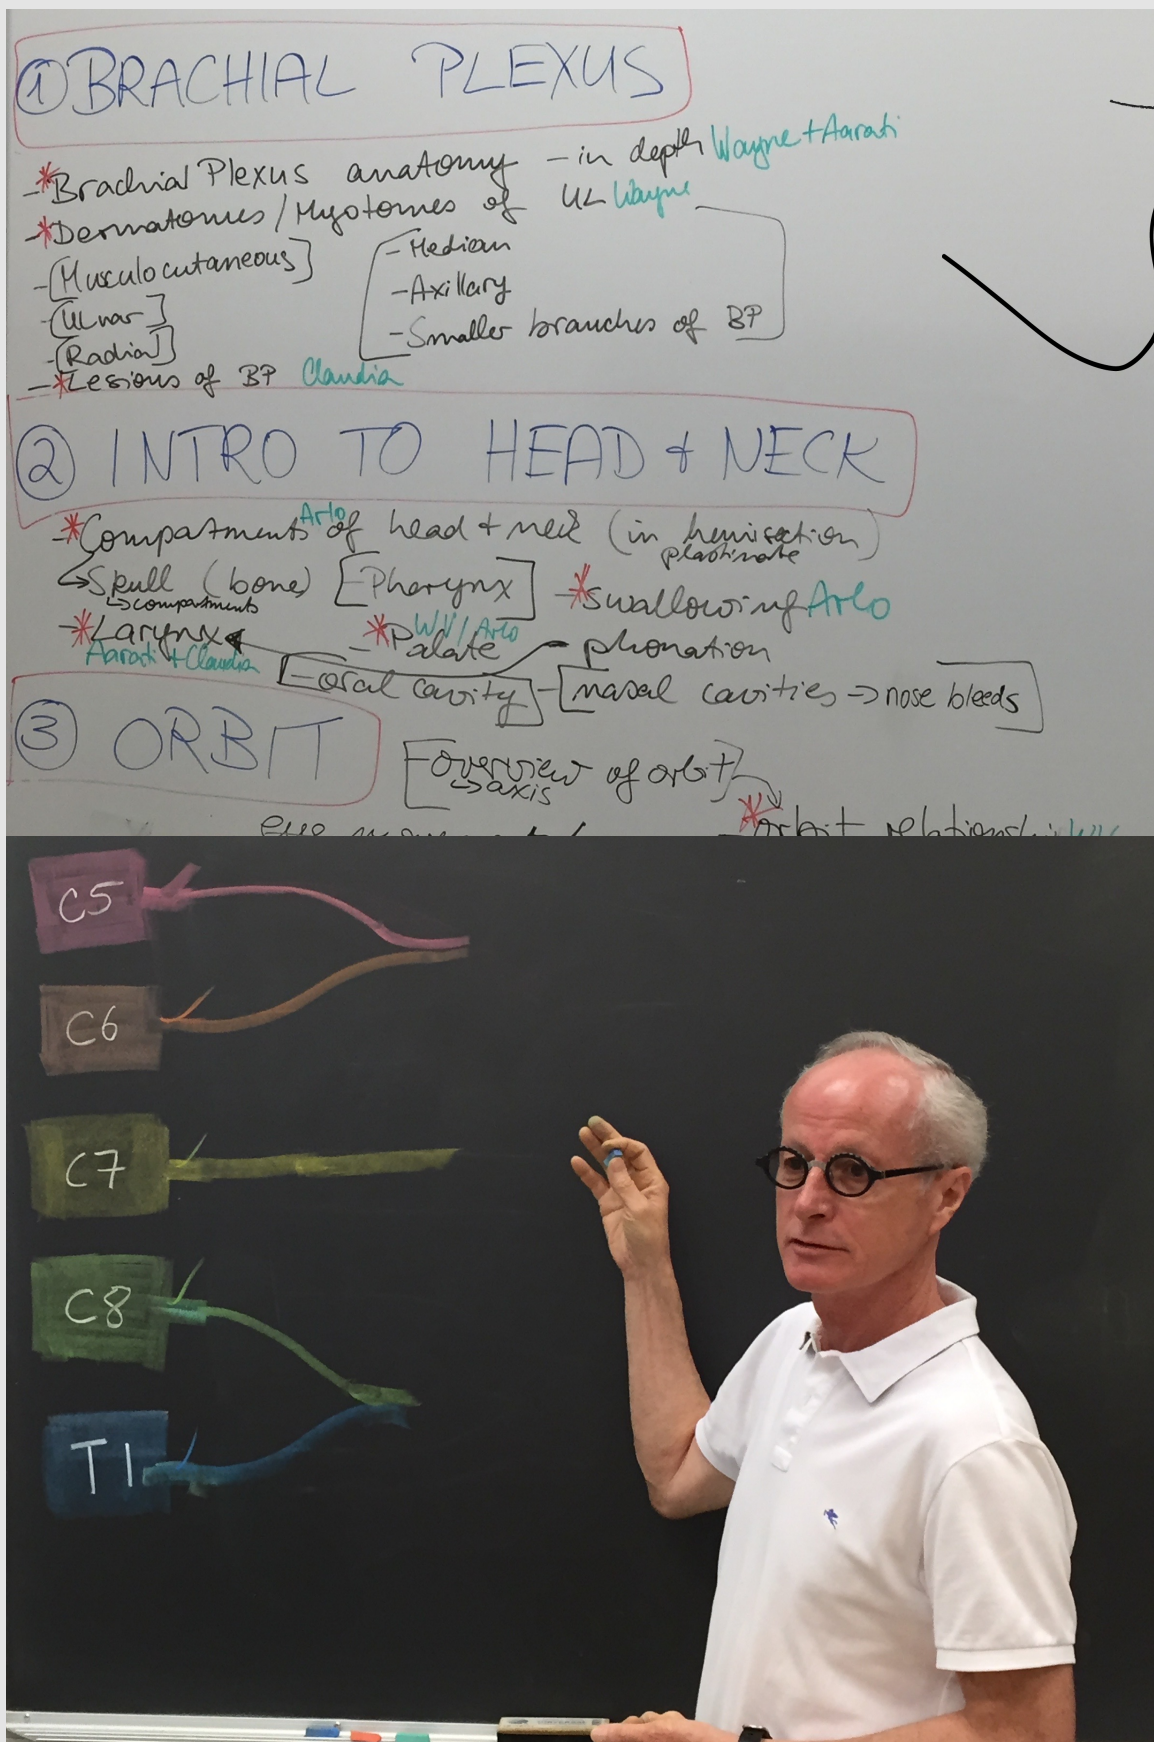 ① BRACHIAL PLEXUS
-*Brachial Plexus anatomy - in depth Wayne + Aarati
-*Dermatomes/Myotomes of UL Wayne
-[Musculocutaneous]
-[Ulnar]
-[Radial]
[-Median
-Axillary
-Smaller branches of BP]
-*Lesions of BP Claudia
② INTRO TO HEAD & NECK
-*Compartments of head + neck (in hemisection)
Arlo
plastinate
↳Skull (bone) [Pharynx] -*swallowing Arlo
↳compartments
-*Larynx -*Palate - phonation
WV/Arlo
Aarati + Claudia
[-oral cavity] -[nasal cavities → nose bleeds]
③ ORBIT
[-overview of orbit]
↳axis
-*orbit relationshi
C5
C6
C7
C8
T1